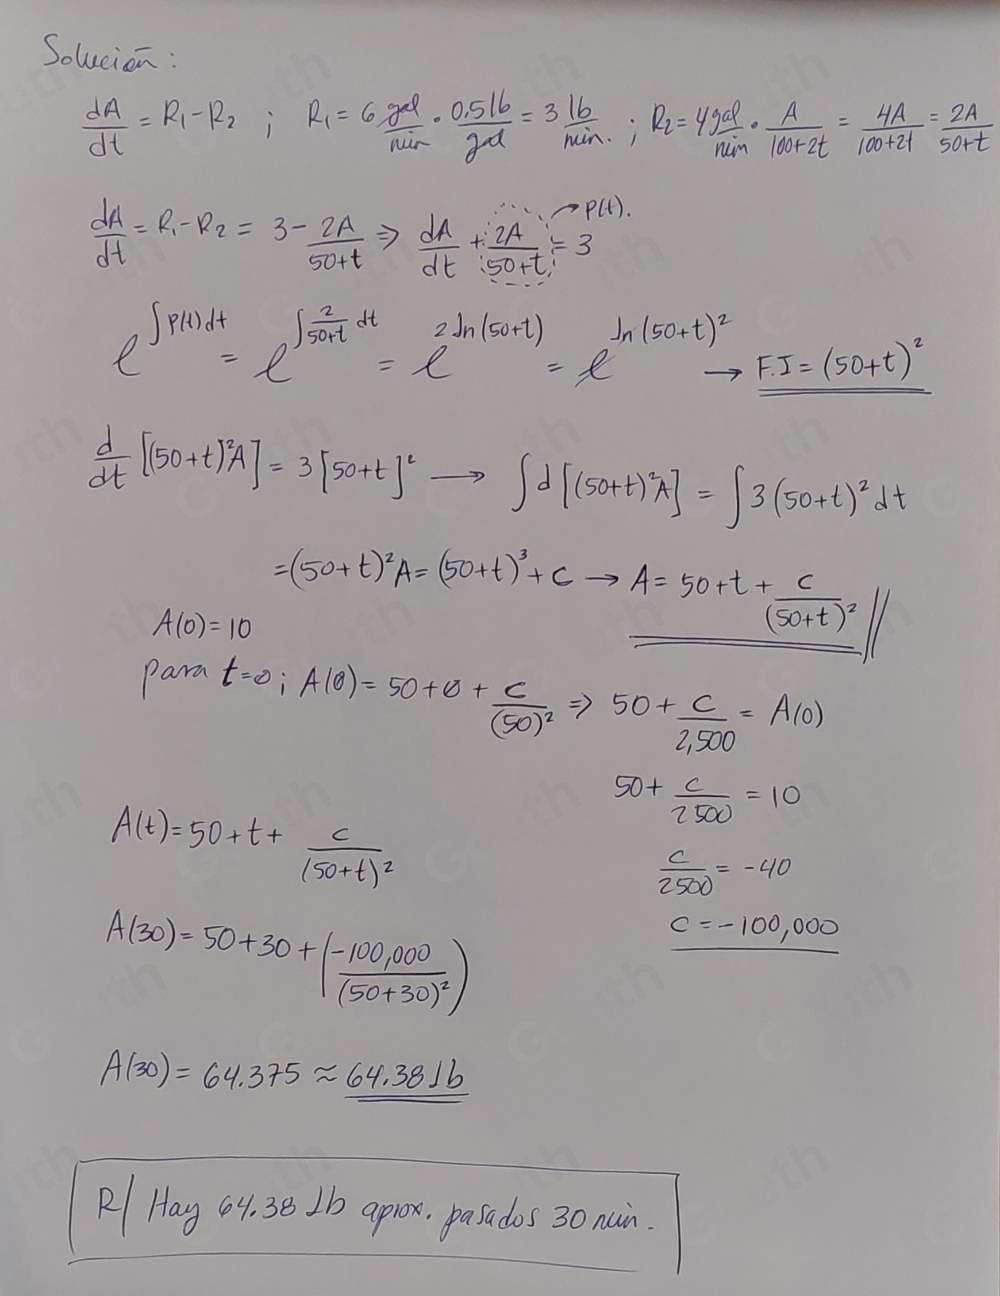 Solución:
dA/dt = R₁-R₂ ; R₁= 6 gal/min · 0.5 lb/gal = 3 lb/min. ; R₂= 4 gal/min · A/100+2t = 4A/100+2t = 2A/50+t
dA/dt = R₁-R₂ = 3 - 2A/50+t ⇒ dA/dt + 2A/50+t = 3 → P(t).
e^∫P(t)dt = e^∫2/50+t dt = e^2ln(50+t) = e^ln(50+t)² → F.I = (50+t)²
d/dt [(50+t)²A] = 3[50+t]² → ∫d[(50+t)²A] = ∫3(50+t)²dt
=(50+t)²A = (50+t)³ + C → A = 50+t + C/(50+t)² //
A(0)=10
para t=0 ; A(0) = 50+0 + C/(50)² ⇒ 50 + C/2,500 = A(0)
50 + C/2500 = 10
A(t) = 50+t+ C/(50+t)²
C/2500 = -40
C = -100,000
A(30) = 50+30+(-100,000/(50+30)²)
A(30) = 64.375 ≈ 64.38 lb
R/ Hay 64.38 Lb aprox. pasados 30 min.